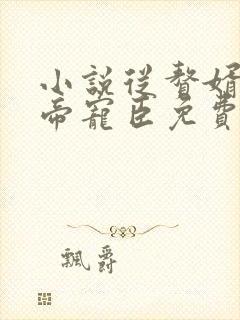 小說從贅婿
帝寵臣免費
飄爵